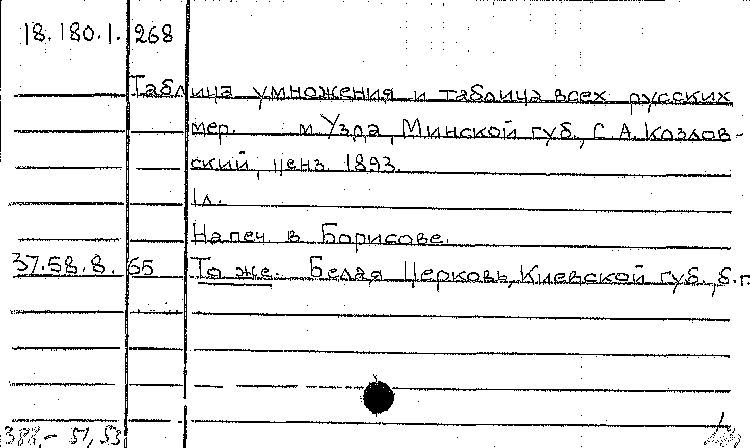 18.180.1. 268
Таблица умножения и таблица всех русских
мер. м. Узда, Минской губ., С. А. Козлов-
ский, ценз. 1893.
1л.
Напеч. в Борисове.
37.58.8. 65 То же. Белая Церковь, Киевской губ., б.г.
388,- 51, 53